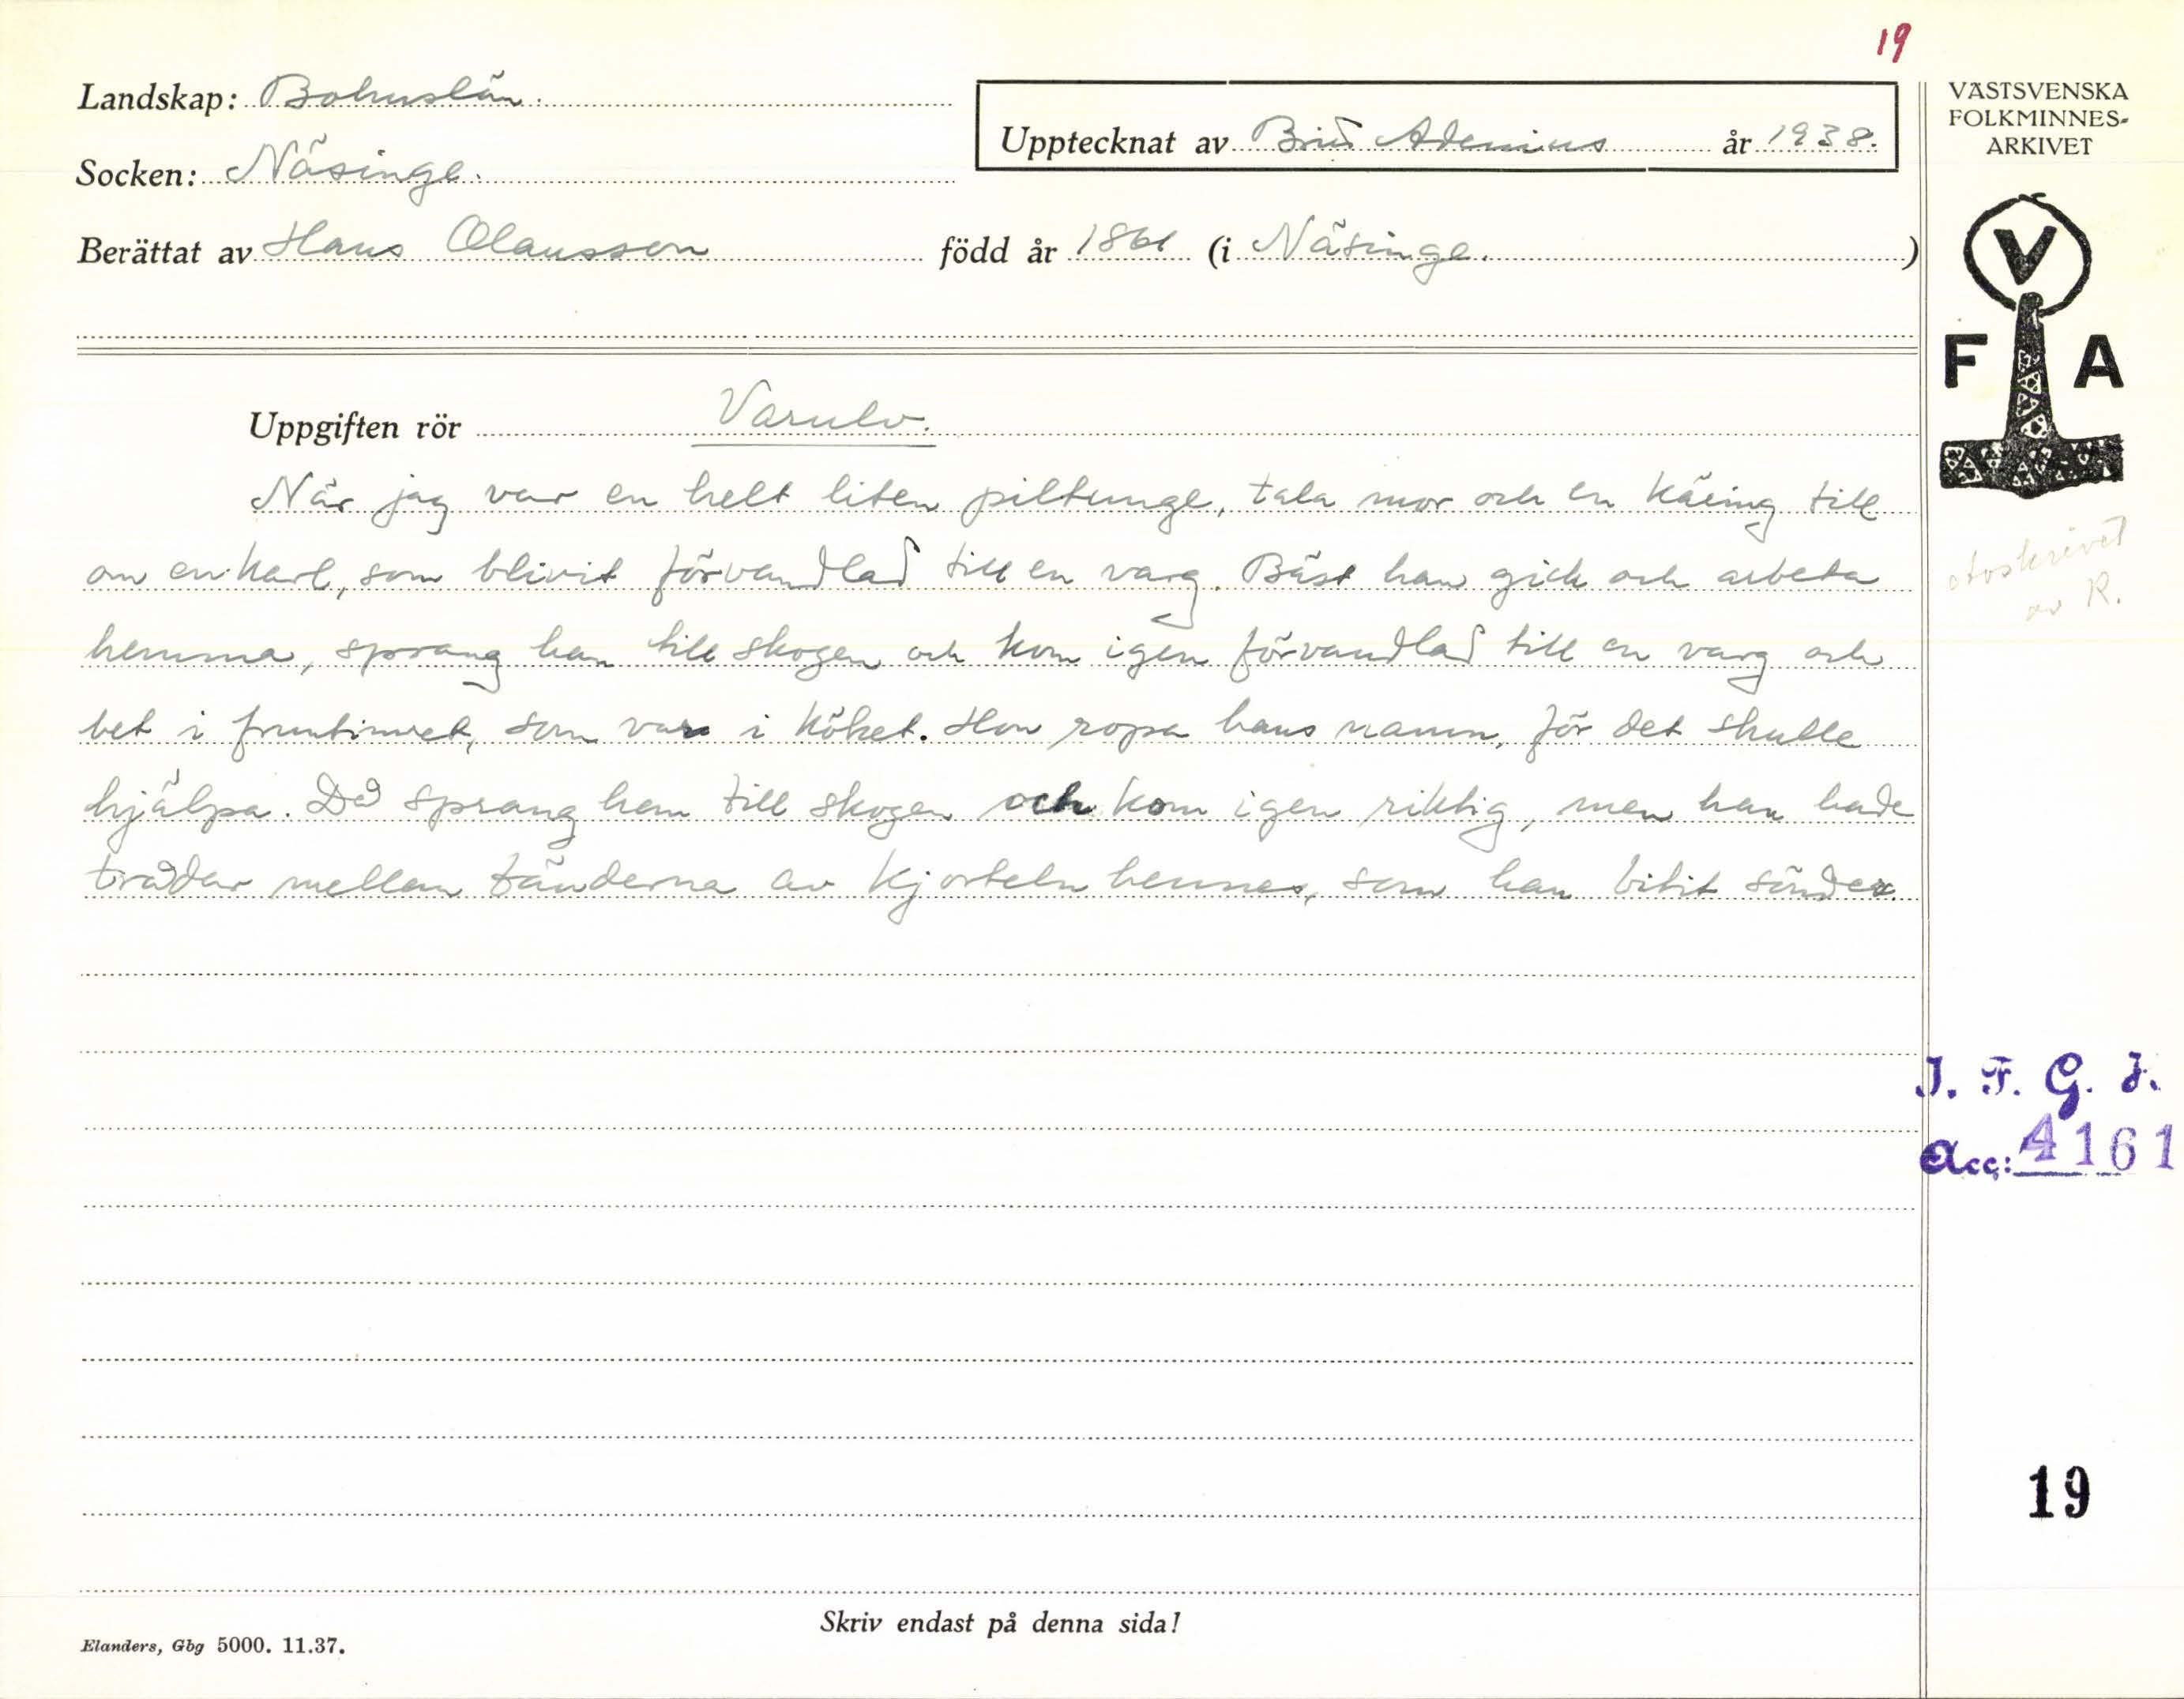 19
Landskap: Bohuslän.
Upptecknat av Brit Adenius år 1938.
Socken: Näsinge.
Berättat av Hans Olausson född år 1861 (i Näsinge.)
VÄSTSVENSKA
FOLKMINNES-
ARKIVET
V
F A
Uppgiften rör Varulv.
När jag var en helt liten piltunge, tala mor och en käring till
om en karl, som blivit förvandlad till en varg. Bäst han gick och arbeta
hemma, sprang han till skogen och kom igen förvandlad till en varg och
bet i fruntimret, som var i köket. Hon ropa hans namn, för det skulle
hjälpa. Då sprang han till skogen och kom igen riktig, men han hade
trådar mellan tänderna av kjorteln hennes, som han bitit sönder.
Avskrivet
av R.
I. F. G. H.
Acc: 4161
19
Skriv endast på denna sida!
Elanders, Gbg 5000. 11.37.